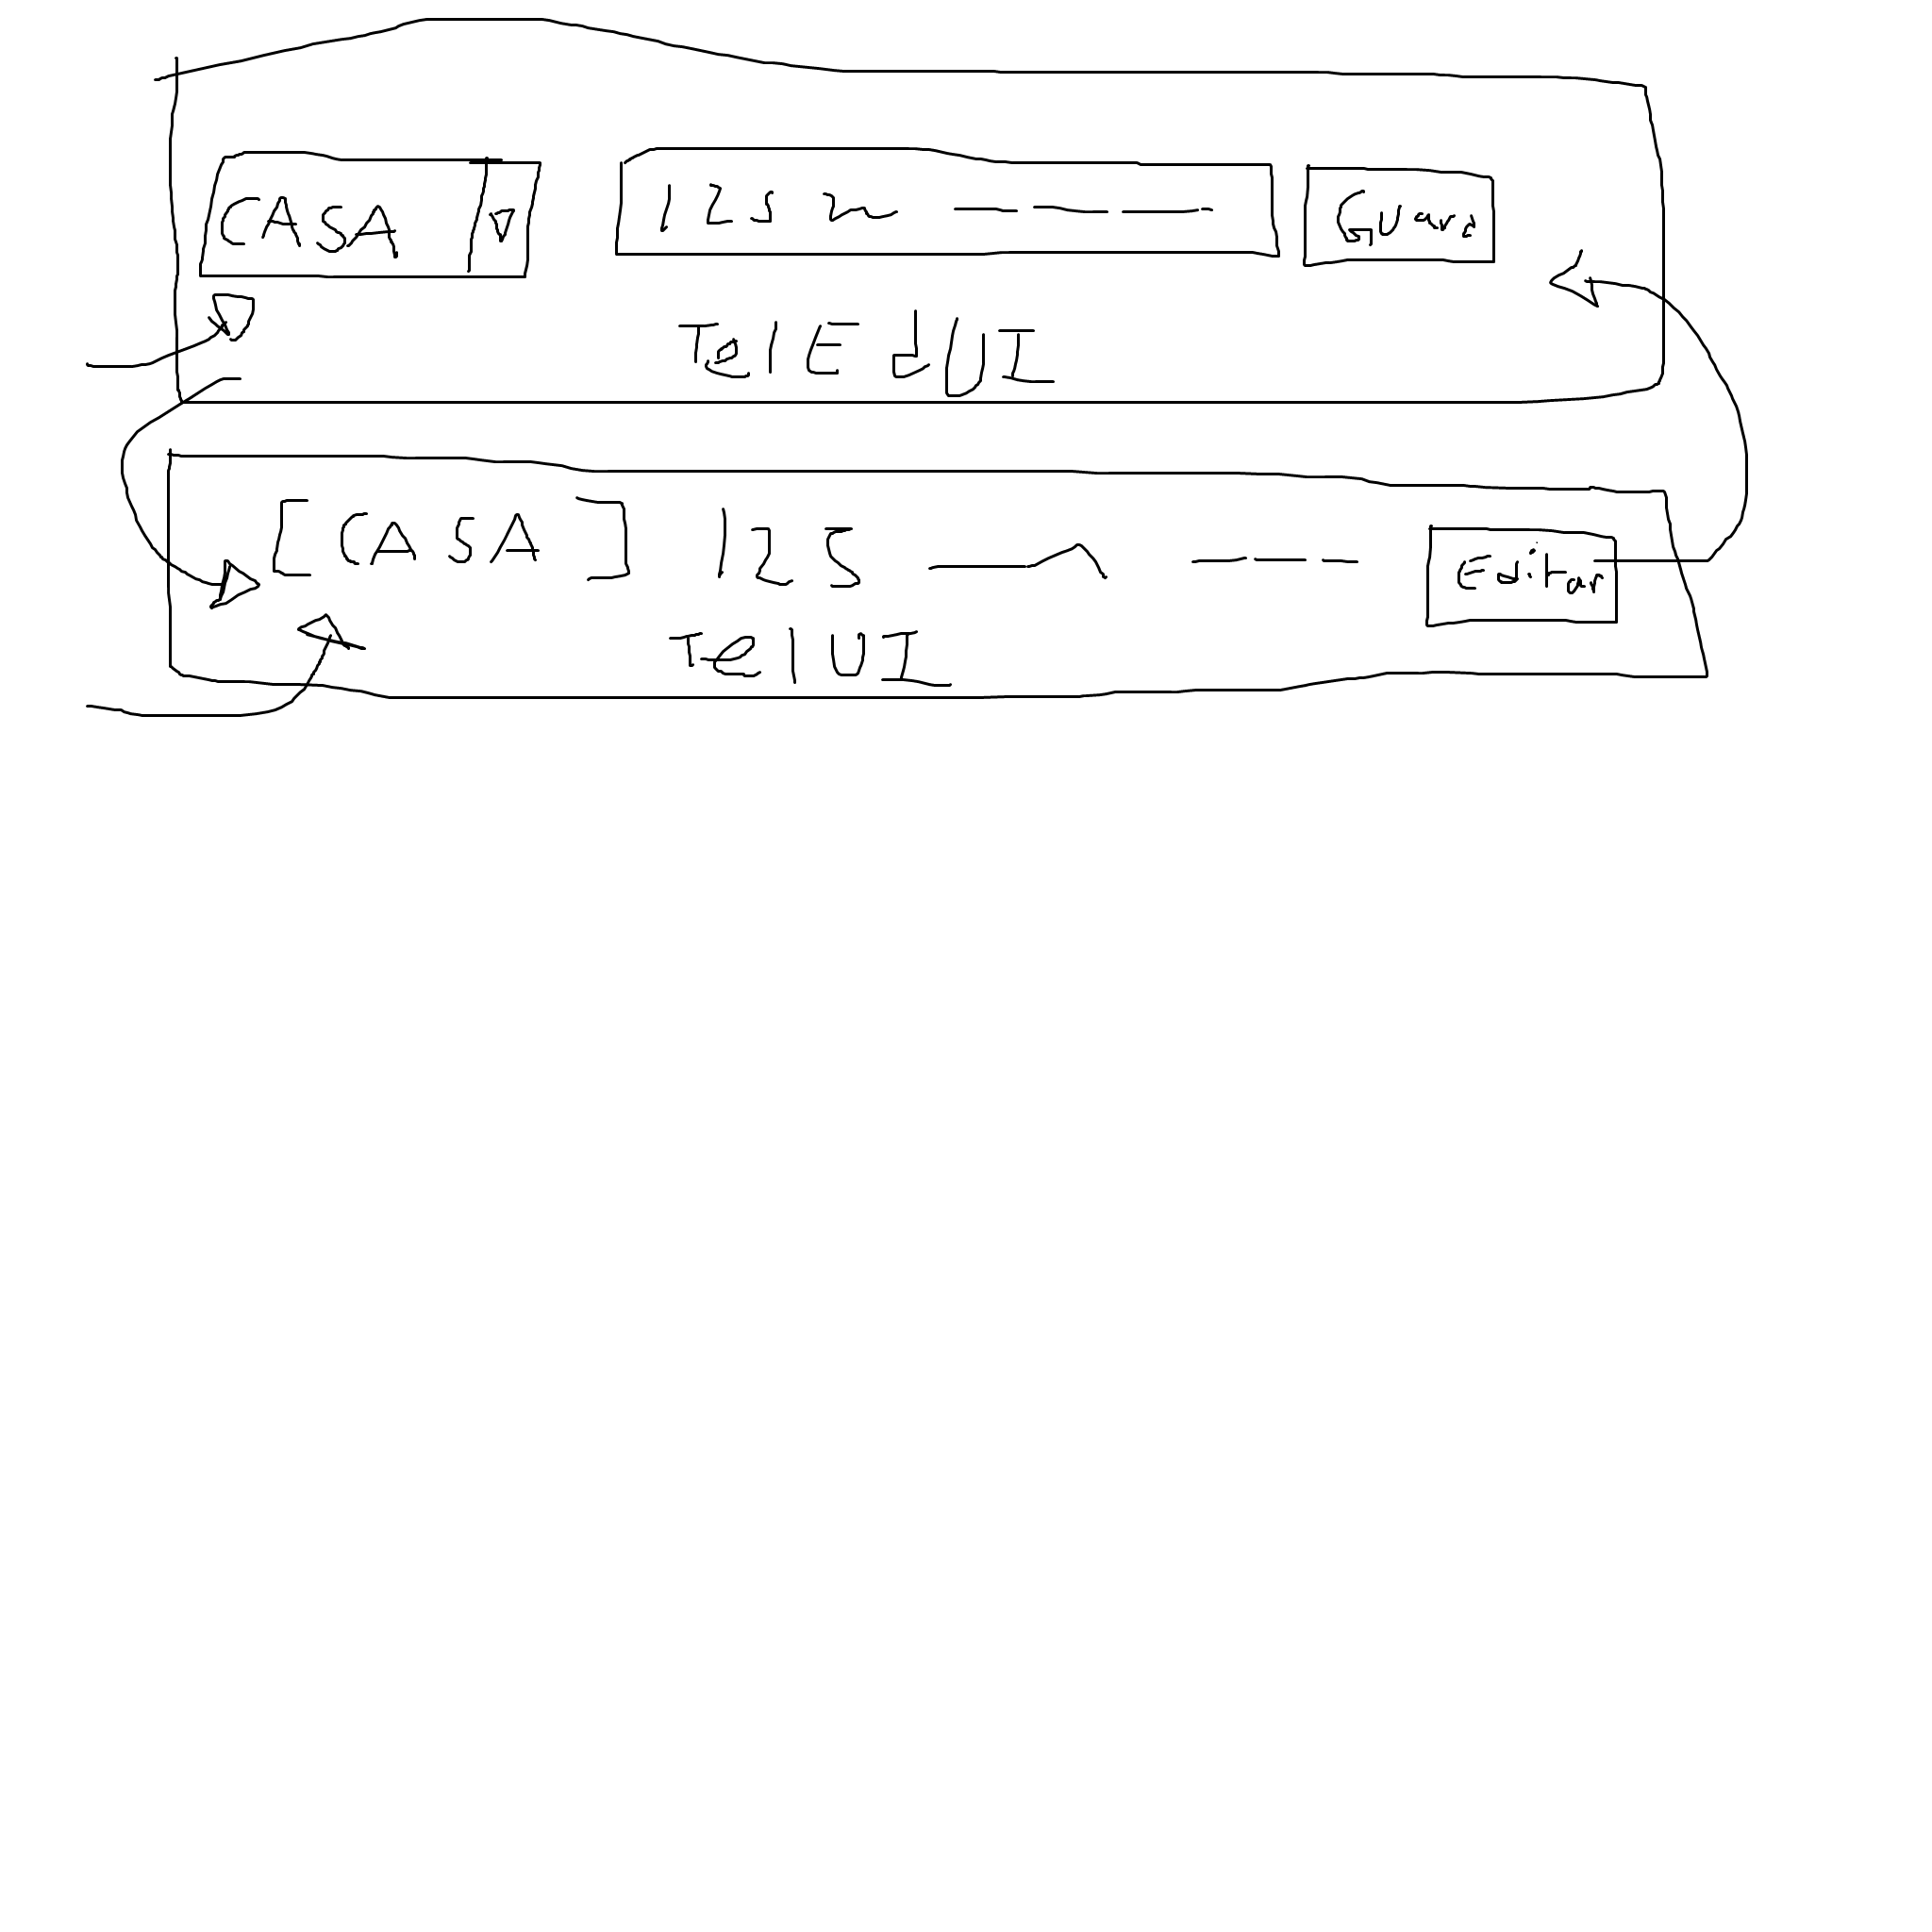 CASA 123 Guard
TelEdUI
[CASA] 123 Editar
TelUI